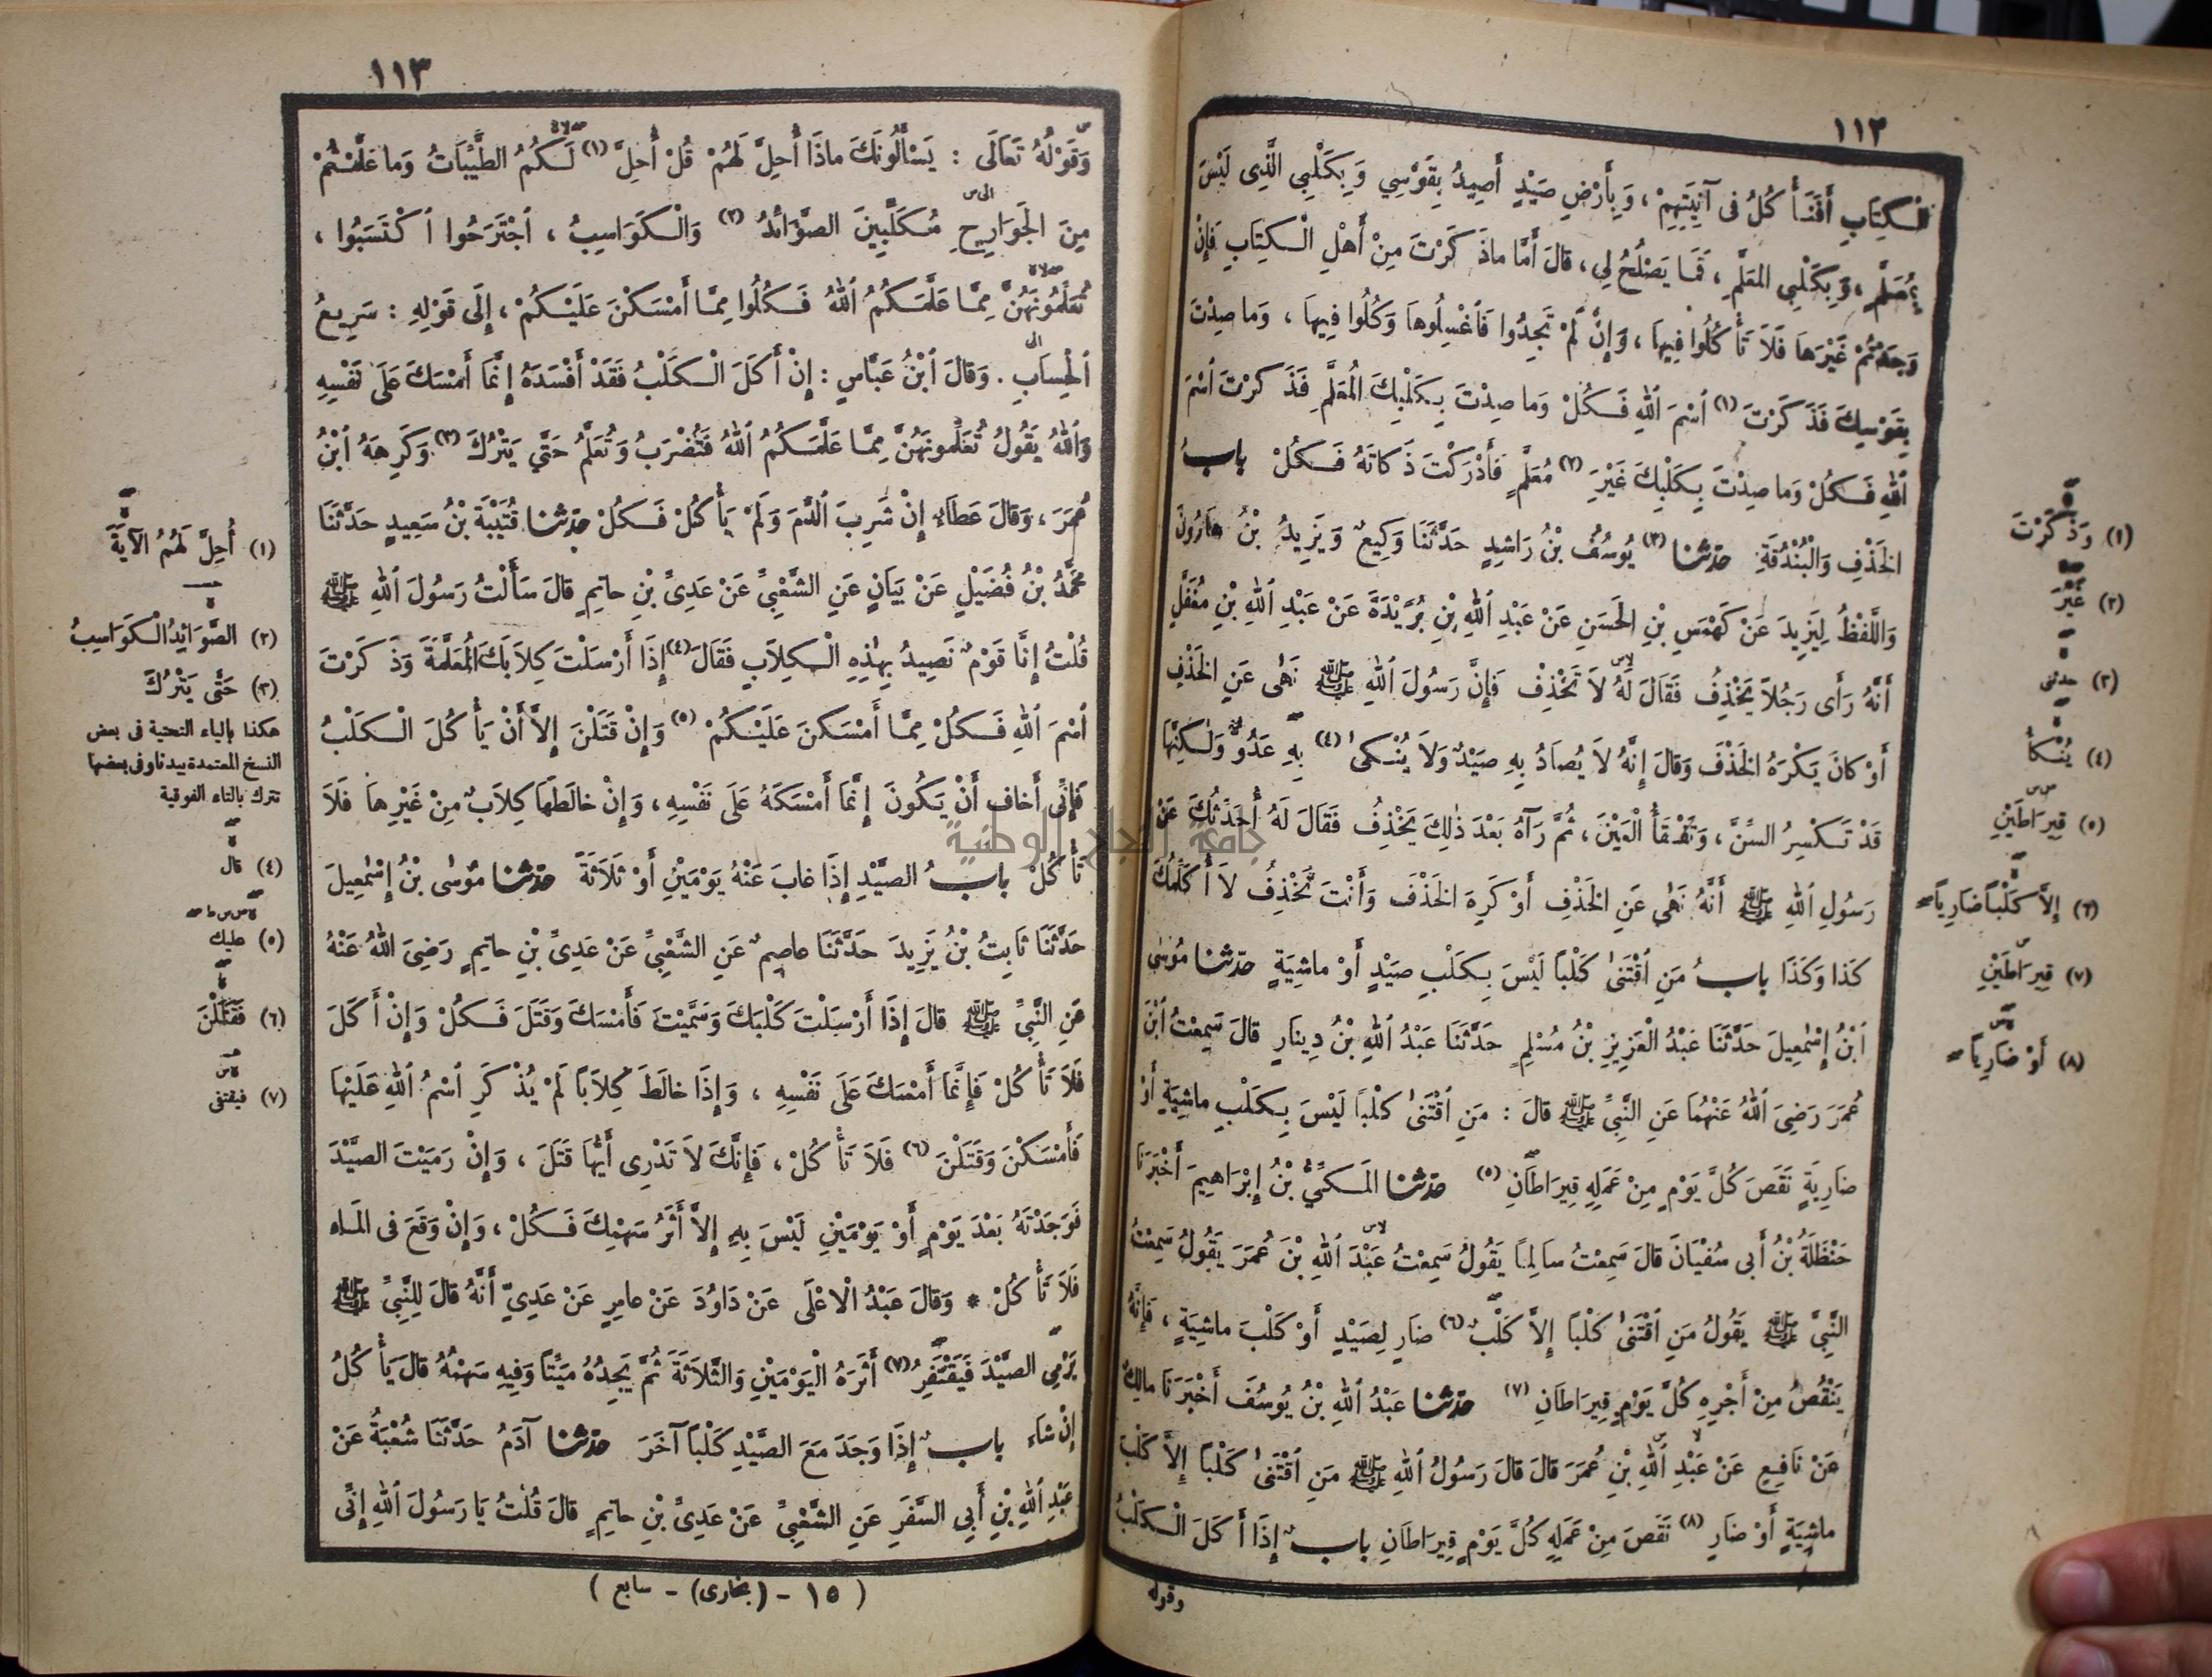 ١١٢
الْكِتَابِ أَفَنَأْكُلُ فِى آنِيَتِهِمْ، وَبِأَرْضِ صَيْدٍ أَصِيدُ بِقَوْسِي وَبِكَلْبِي الَّذِى لَيْسَ
بِمُعَلَّمٍ، وَبِكَلْبِي المُعَلَّمِ، فَمَا يَصْلُحُ لِي، قالَ أَمَّا ماذَكَرْتَ مِنْ أَهْلِ الْكِتَابِ فَإِنْ
وَجَدْتُمْ غَيْرَهَا فَلَا تَأْكُلُوا فِيهَا، وَإِنْ لَمْ تَجِدُوا فَاغْسِلُوهَا وَكُلُوا فِيهَا، وَما صِدْتَ
بِقَوْسِكَ فَذَكَرْتَ (١) اسْمَ اللهِ فَكُلْ وَما صِدْتَ بِكَلْبِكَ الْمُعَلَّمِ فَذَكَرْتَ اسْمَ
اللهِ فَكُلْ وَما صِدْتَ بِكَلْبِكَ غَيْرَ (٢) مُعَلَّمٍ فَأَدْرَكْتَ ذَكاتَهُ فَكُلْ بابُ
الخَذْفِ وَالْبُنْدُقَةِ حدثنا (٣) يُوسُفُ بْنُ رَاشِدٍ حَدَّثَنَا وَكِيعٌ وَيَزِيدُ بْنُ هَارُونَ
وَاللَّفْظُ لِيَزِيدَ عَنْ كَهْمَسِ بْنِ الحَسَنِ عَنْ عَبْدِ اللهِ بْنِ بُرَيْدَةَ عَنْ عَبْدِ اللهِ بْنِ مُغَفَّلٍ
أَنَّهُ رَأَى رَجُلاً يَخْذِفُ فَقَالَ لَهُ لاَ تَخْذِفْ فَإِنَّ رَسُولَ اللهِ ﷺ نَهٰى عَنِ الخَذْفِ
أَوْ كانَ يَكْرَهُ الخَذْفَ وَقالَ إِنَّهُ لاَ يُصَادُ بِهِ صَيْدٌ وَلاَ يُنْكى (٤) بِهِ عَدُوٌّ وَلٰكِنَّهَا
قَدْ تَكْسِرُ السِّنَّ، وَتَفْقَأُ الْعَيْنَ، ثُمَّ رَآهُ بَعْدَ ذٰلِكَ يَخْذِفُ فَقَالَ لَهُ أُحَدِّثُكَ عَنْ
رَسُولِ اللهِ ﷺ أَنَّهُ نَهٰى عَنِ الخَذْفِ أَوْ كَرِهَ الخَذْفَ وَأَنْتَ تَخْذِفُ لاَ أُكَلِّمُكَ
كَذا وَكَذَا بابُ مَنِ اقْتَنَى كَلْباً لَيْسَ بِكَلْبِ صَيْدٍ أَوْ ماشِيَةٍ حدثنا مُوسٰى
ابْنُ إِسْمٰعِيلَ حَدَّثَنَا عَبْدُ الْعَزِيزِ بْنُ مُسْلِمٍ حَدَّثَنَا عَبْدُ اللهِ بْنُ دِينَارٍ قالَ سَمِعْتُ ابْنَ
عُمَرَ رَضِىَ اللهُ عَنْهُمَا عَنِ النَّبِىِّ ﷺ قالَ : مَنِ اقْتَنَى كَلْباً لَيْسَ بِكَلْبِ ماشِيَةٍ أَوْ
ضَارِيَةٍ نَقَصَ كُلَّ يَوْمٍ مِنْ عَمَلِهِ قِيرَاطَانِ (٥) حدثنا المَكِّىُّ بْنُ إِبْرَاهِيمَ أَخْبَرَنَا
حَنْظَلَةُ بْنُ أَبى سُفْيَانَ قالَ سَمِعْتُ سَالِماً يَقُولُ سَمِعْتُ عَبْدَ اللهِ بْنَ عُمَرَ يَقُولُ سَمِعْتُ
النَّبِىَّ ﷺ يَقُولُ مَنِ اقْتَنَى كَلْباً إِلاَّ كَلْبٌ (٦) ضَارٍ لِصَيْدٍ أَوْ كَلْبَ ماشِيَةٍ، فَإِنَّهُ
يَنْقُصُ مِنْ أَجْرِهِ كُلَّ يَوْمٍ قِيرَاطَانِ (٧) حدثنا عَبْدُ اللهِ بْنُ يُوسُفَ أَخْبَرَنَا مالِكٌ
عَنْ نَافِعٍ عَنْ عَبْدِ اللهِ بْنِ عُمَرَ قالَ قالَ رَسُولُ اللهِ ﷺ مَنِ اقْتَنَى كَلْباً إِلاَّ كَلْبَ
ماشِيَةٍ أَوْ ضَارٍ (٨) نَقَصَ مِنْ عَمَلِهِ كُلَّ يَوْمٍ قِيرَاطَانِ بابٌ إِذَا أَكَلَ الْكَلْبُ
وقوله
(١) وَذَكَرْتَ
(٢) غَيْرَ
(٣) حدثنى
(٤) يُنْكَأُ
(٥) قِيرَاطَيْنِ
(٦) إِلاَّ كَلْباً ضَارِياً
(٧) قِيرَاطَيْنِ
(٨) أَوْ ضَارِياً
١١٣
وَقَوْلُهُ تَعَالَى : يَسْأَلُونَكَ ماذَا أُحِلَّ لَهُمْ قُلْ أُحِلَّ (١) لَكُمُ الطَّيِّبَاتُ وَما عَلَّمْتُمْ
مِنَ الجَوَارِحِ مُكَلِّبِينَ الصَّوَائِدُ (٢) وَالْكَوَاسِبُ، اجْتَرَحُوا اكْتَسَبُوا،
تُعَلِّمُونَهُنَّ مِمَّا عَلَّمَكُمُ اللهُ فَكُلُوا مِمَّا أَمْسَكْنَ عَلَيْكُمْ، إِلَى قَوْلِهِ : سَرِيعُ
الْحِسَابِ . وَقالَ ابْنُ عَبَّاسٍ : إِنْ أَكَلَ الْكَلْبُ فَقَدْ أَفْسَدَهُ إِنَّمَا أَمْسَكَ عَلَى نَفْسِهِ
وَاللهُ يَقُولُ تُعَلِّمُونَهُنَّ مِمَّا عَلَّمَكُمُ اللهُ فَتُضْرَبُ وَتُعَلَّمُ حَتَّى يَتْرُكَ (٣) وَكَرِهَهُ ابْنُ
عُمَرَ، وَقالَ عَطَاءٌ إِنْ شَرِبَ الدَّمَ وَلَمْ يَأْكُلْ فَكُلْ حدثنا قُتَيْبَةُ بْنُ سَعِيدٍ حَدَّثَنَا
مُحَمَّدُ بْنُ فُضَيْلٍ عَنْ بَيَانٍ عَنِ الشَّعْبِىِّ عَنْ عَدِىِّ بْنِ حاتِمٍ قالَ سَأَلْتُ رَسُولَ اللهِ ﷺ
قُلْتُ إِنَّا قَوْمٌ نَصِيدُ بِهٰذِهِ الْكِلاَبِ فَقَالَ (٤) إِذَا أَرْسَلْتَ كِلاَبَكَ الْمُعَلَّمَةَ وَذَكَرْتَ
اسْمَ اللهِ فَكُلْ مِمَّا أَمْسَكْنَ عَلَيْكُمْ (٥) وَإِنْ قَتَلْنَ إِلاَّ أَنْ يَأْكُلَ الْكَلْبُ
فَإِنِّى أَخافُ أَنْ يَكُونَ إِنَّمَا أَمْسَكَهُ عَلَى نَفْسِهِ، وَإِنْ خالَطَهَا كِلاَبٌ مِنْ غَيْرِهَا فَلاَ
تَأْكُلْ بابُ الصَّيْدِ إِذَا غابَ عَنْهُ يَوْمَيْنِ أَوْ ثَلاَثَةً حدثنا مُوسٰى بْنُ إِسْمٰعِيلَ
حَدَّثَنَا ثَابِتُ بْنُ يَزِيدَ حَدَّثَنَا عاصِمٌ عَنِ الشَّعْبِىِّ عَنْ عَدِىِّ بْنِ حاتِمٍ رَضِىَ اللهُ عَنْهُ
عَنِ النَّبِىِّ ﷺ قالَ إِذَا أَرْسَلْتَ كَلْبَكَ وَسَمَّيْتَ فَأَمْسَكَ وَقَتَلَ فَكُلْ وَإِنْ أَكَلَ
فَلاَ تَأْكُلْ فَإِنَّمَا أَمْسَكَ عَلَى نَفْسِهِ، وَإِذَا خالَطَ كِلاَباً لَمْ يُذْكَرِ اسْمُ اللهِ عَلَيْهَا
فَأَمْسَكْنَ وَقَتَلْنَ (٦) فَلاَ تَأْكُلْ، فَإِنَّكَ لاَ تَدْرِى أَيُّهَا قَتَلَ، وَإِنْ رَمَيْتَ الصَّيْدَ
فَوَجَدْتَهُ بَعْدَ يَوْمٍ أَوْ يَوْمَيْنِ لَيْسَ بِهِ إِلاَّ أَثَرُ سَهْمِكَ فَكُلْ، وَإِنْ وَقَعَ فى المَاءِ
فَلاَ تَأْكُلْ * وَقالَ عَبْدُ الْاعْلَى عَنْ دَاوُدَ عَنْ عامِرٍ عَنْ عَدِيٍّ أَنَّهُ قالَ لِلنَّبِىِّ ﷺ
يَرْمِى الصَّيْدَ فَيَقْتَفِرُ (٧) أَثَرَهُ الْيَوْمَيْنِ وَالثَّلاَثَةَ ثُمَّ يَجِدُهُ مَيِّتاً وَفِيهِ سَهْمُهُ قالَ يَأْكُلُ
إِنْ شَاءَ بابٌ إِذَا وَجَدَ مَعَ الصَّيْدِ كَلْباً آخَرَ حدثنا آدَمُ حَدَّثَنَا شُعْبَةُ عَنْ
عَبْدِ اللهِ بْنِ أَبِي السَّفَرِ عَنِ الشَّعْبِىِّ عَنْ عَدِىِّ بْنِ حاتِمٍ قالَ قُلْتُ يَا رَسُولَ اللهِ إِنِّى
( ١٥ - (بخارى) - سابع )
(١) أُحِلَّ لَهُمُ الآيَةَ
(٢) الصَّوَائِدُ الْكَوَاسِبُ
(٣) حَتَّى يَتْرُكَ
هكذا بالياء التحتية فى بعض
النسخ المعتمدة بيدنا وفى بعضها
تترك بالتاء الفوقية
(٤) قال
(٥) عليك
(٦) فَقَتَلْنَ
(٧) فيقتفى
جامعة النجاح الوطنية